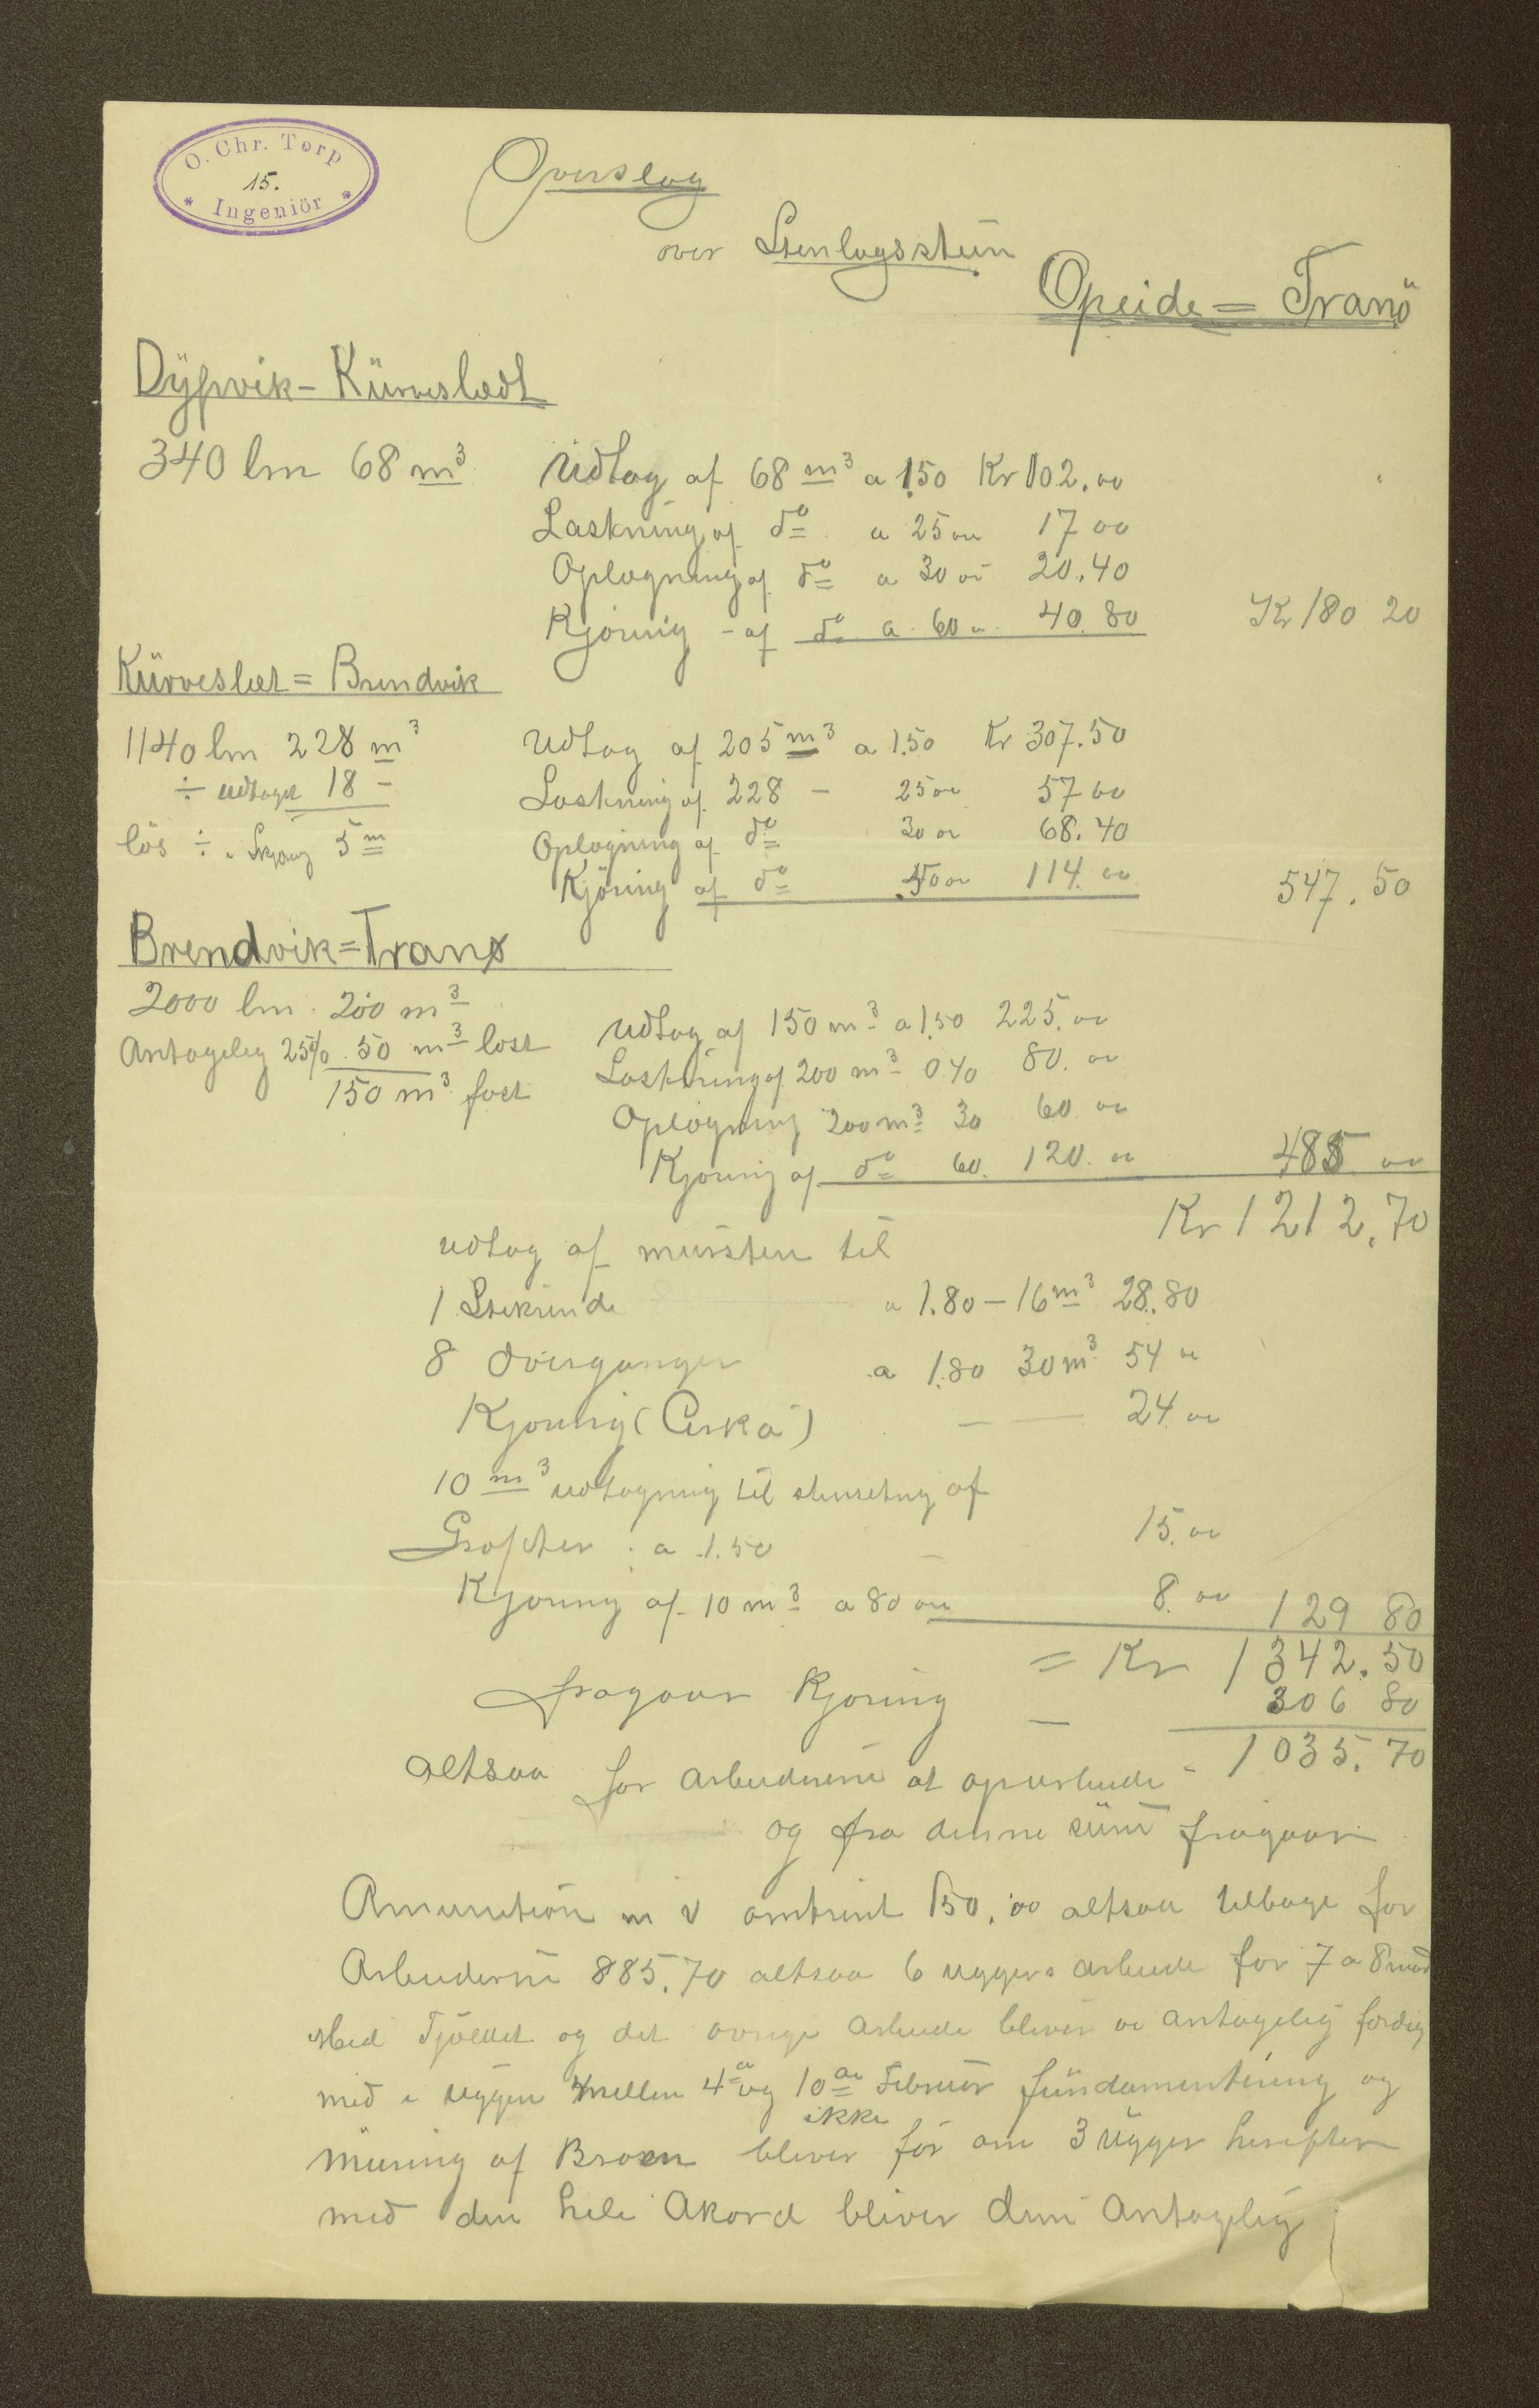 O. Chr. Torp
15.
* Ingeniör *
Overslag
over Stenlagsstein
Opeide = Tranö
Dypvik - Kürveslædt
340 lm 68 m³
Udtag af 68 m³ a 1.50 Kr 102.00
Laskning af do a 25 øre 17 00
Oplægning af do a 30 ör 20.40
Kjøring - af do a 60 " 40.80 Kr 180 20
Kürveslæt = Brendvik
1140 lm 228 m³
÷ udtaget 18 -
lös ÷ i Skjæring 5 m
Udtag af 205 m³ a 1.50 Kr 307.50
Laskning af 228 - 25 ør 57 00
Oplægning af do 30 ør 68.40
Kjöring af do 50 ør 114.00 547.50
Brendvik = Tranø
2000 lm. 200 m³
Antagelig 25% 50 m³ löst
150 m³ fast
Udtag af 150 m³ a 1.50 225.00
Laskning af 200 m³ 0.40 80.00
Oplægning 200 m³ 30 60 00
Kjøring af do 60. 120.00 485 00
Kr 1212.70
udtag af mursten til
1 Stikrende a 1.80 - 16 m³ 28.80
8 overganger a 1.80 30 m³ 54 "
Kjøring (Cirka) - - 24.00
10 m³ udtagning til stensetng af
Grøfter : a 1.50 15.00
Kjøring af 10 m³ a 80 øre 8.00 129 80
= Kr 1342.50
fragaar Kjøring - 306 80
altsaa for arbeiderne at oparbeide - 1035.70
og fra denne süm fragaar
Amunition m v omtrent 150.00 altsaa tilbage for
Arbeiderne 885.70 altsaa 6 uggers arbeide for 7 a 8 mand
Med Fjeldet og det øvrige arbeide bliver vi antagelig færdig
med i uggen mellem 4de og 10de Februar fündamentering og
müring af Broen bliver ikke før om 3 ügger herefter
med den hele Akord bliver den Antagelig